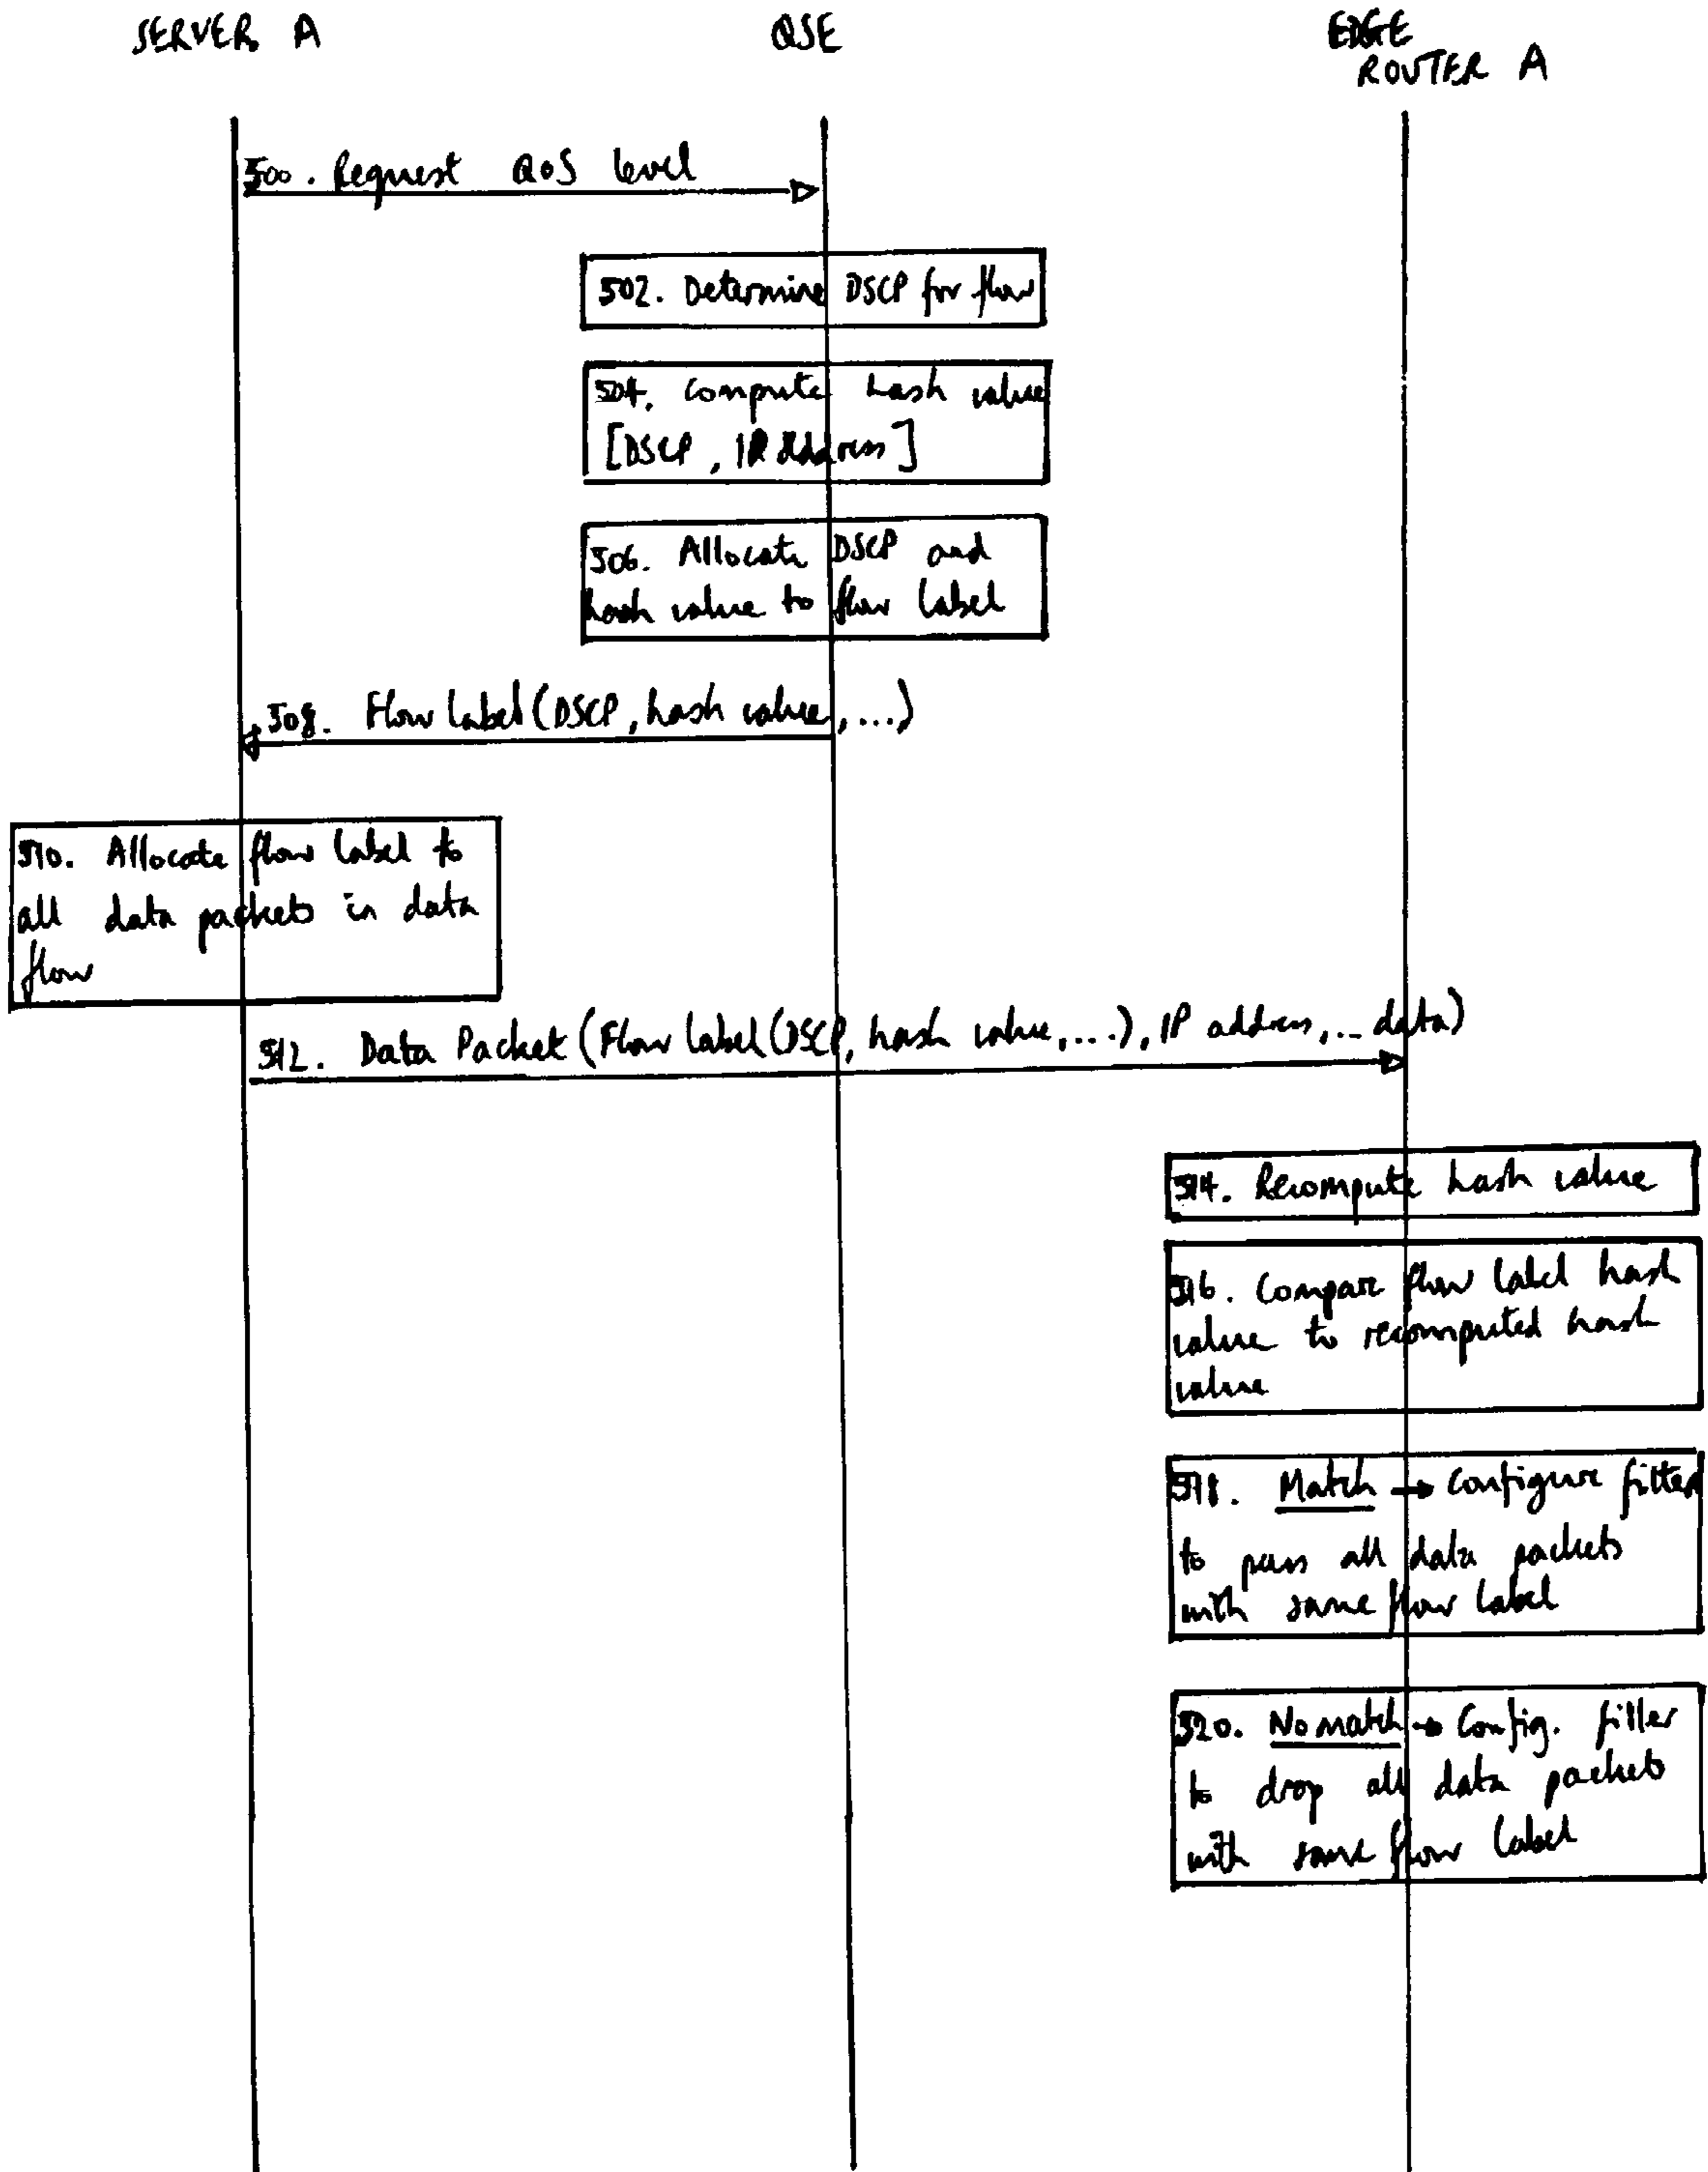 SERVER A
QSE
EDGE
ROUTER A
500. Request QoS level
502. Determine DSCP for flow
504. Compute hash value
[DSCP, IP address]
506. Allocate DSCP and
hash value to flow label
508. Flow label (DSCP, hash value, ...)
510. Allocate flow label to
all data packets in data
flow
512. Data Packet (Flow label (DSCP, hash value, ....), IP address, ... data)
514. Recompute hash value
516. Compare flow label hash
value to recomputed hash
value
518. Match → Configure filter
to pass all data packets
with same flow label
520. No match → Config. filter
to drop all data packets
with same flow label